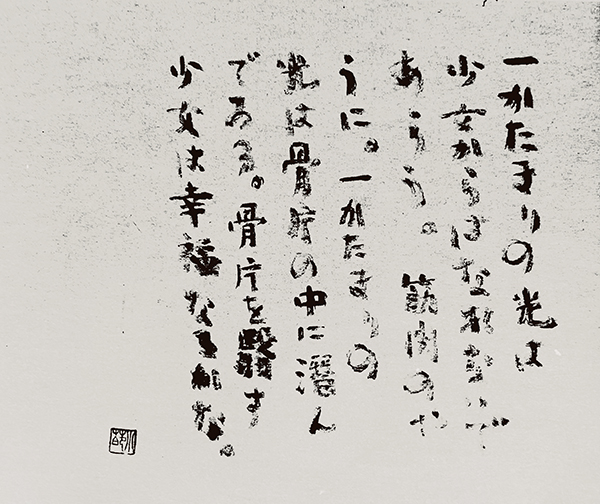 一かたまりの光は
少女からはなれないで
あらう。筋肉のや
うに。一かたまりの
光は骨片の中に潜ん
でゐる。骨片を す
少女は幸福なるかな。